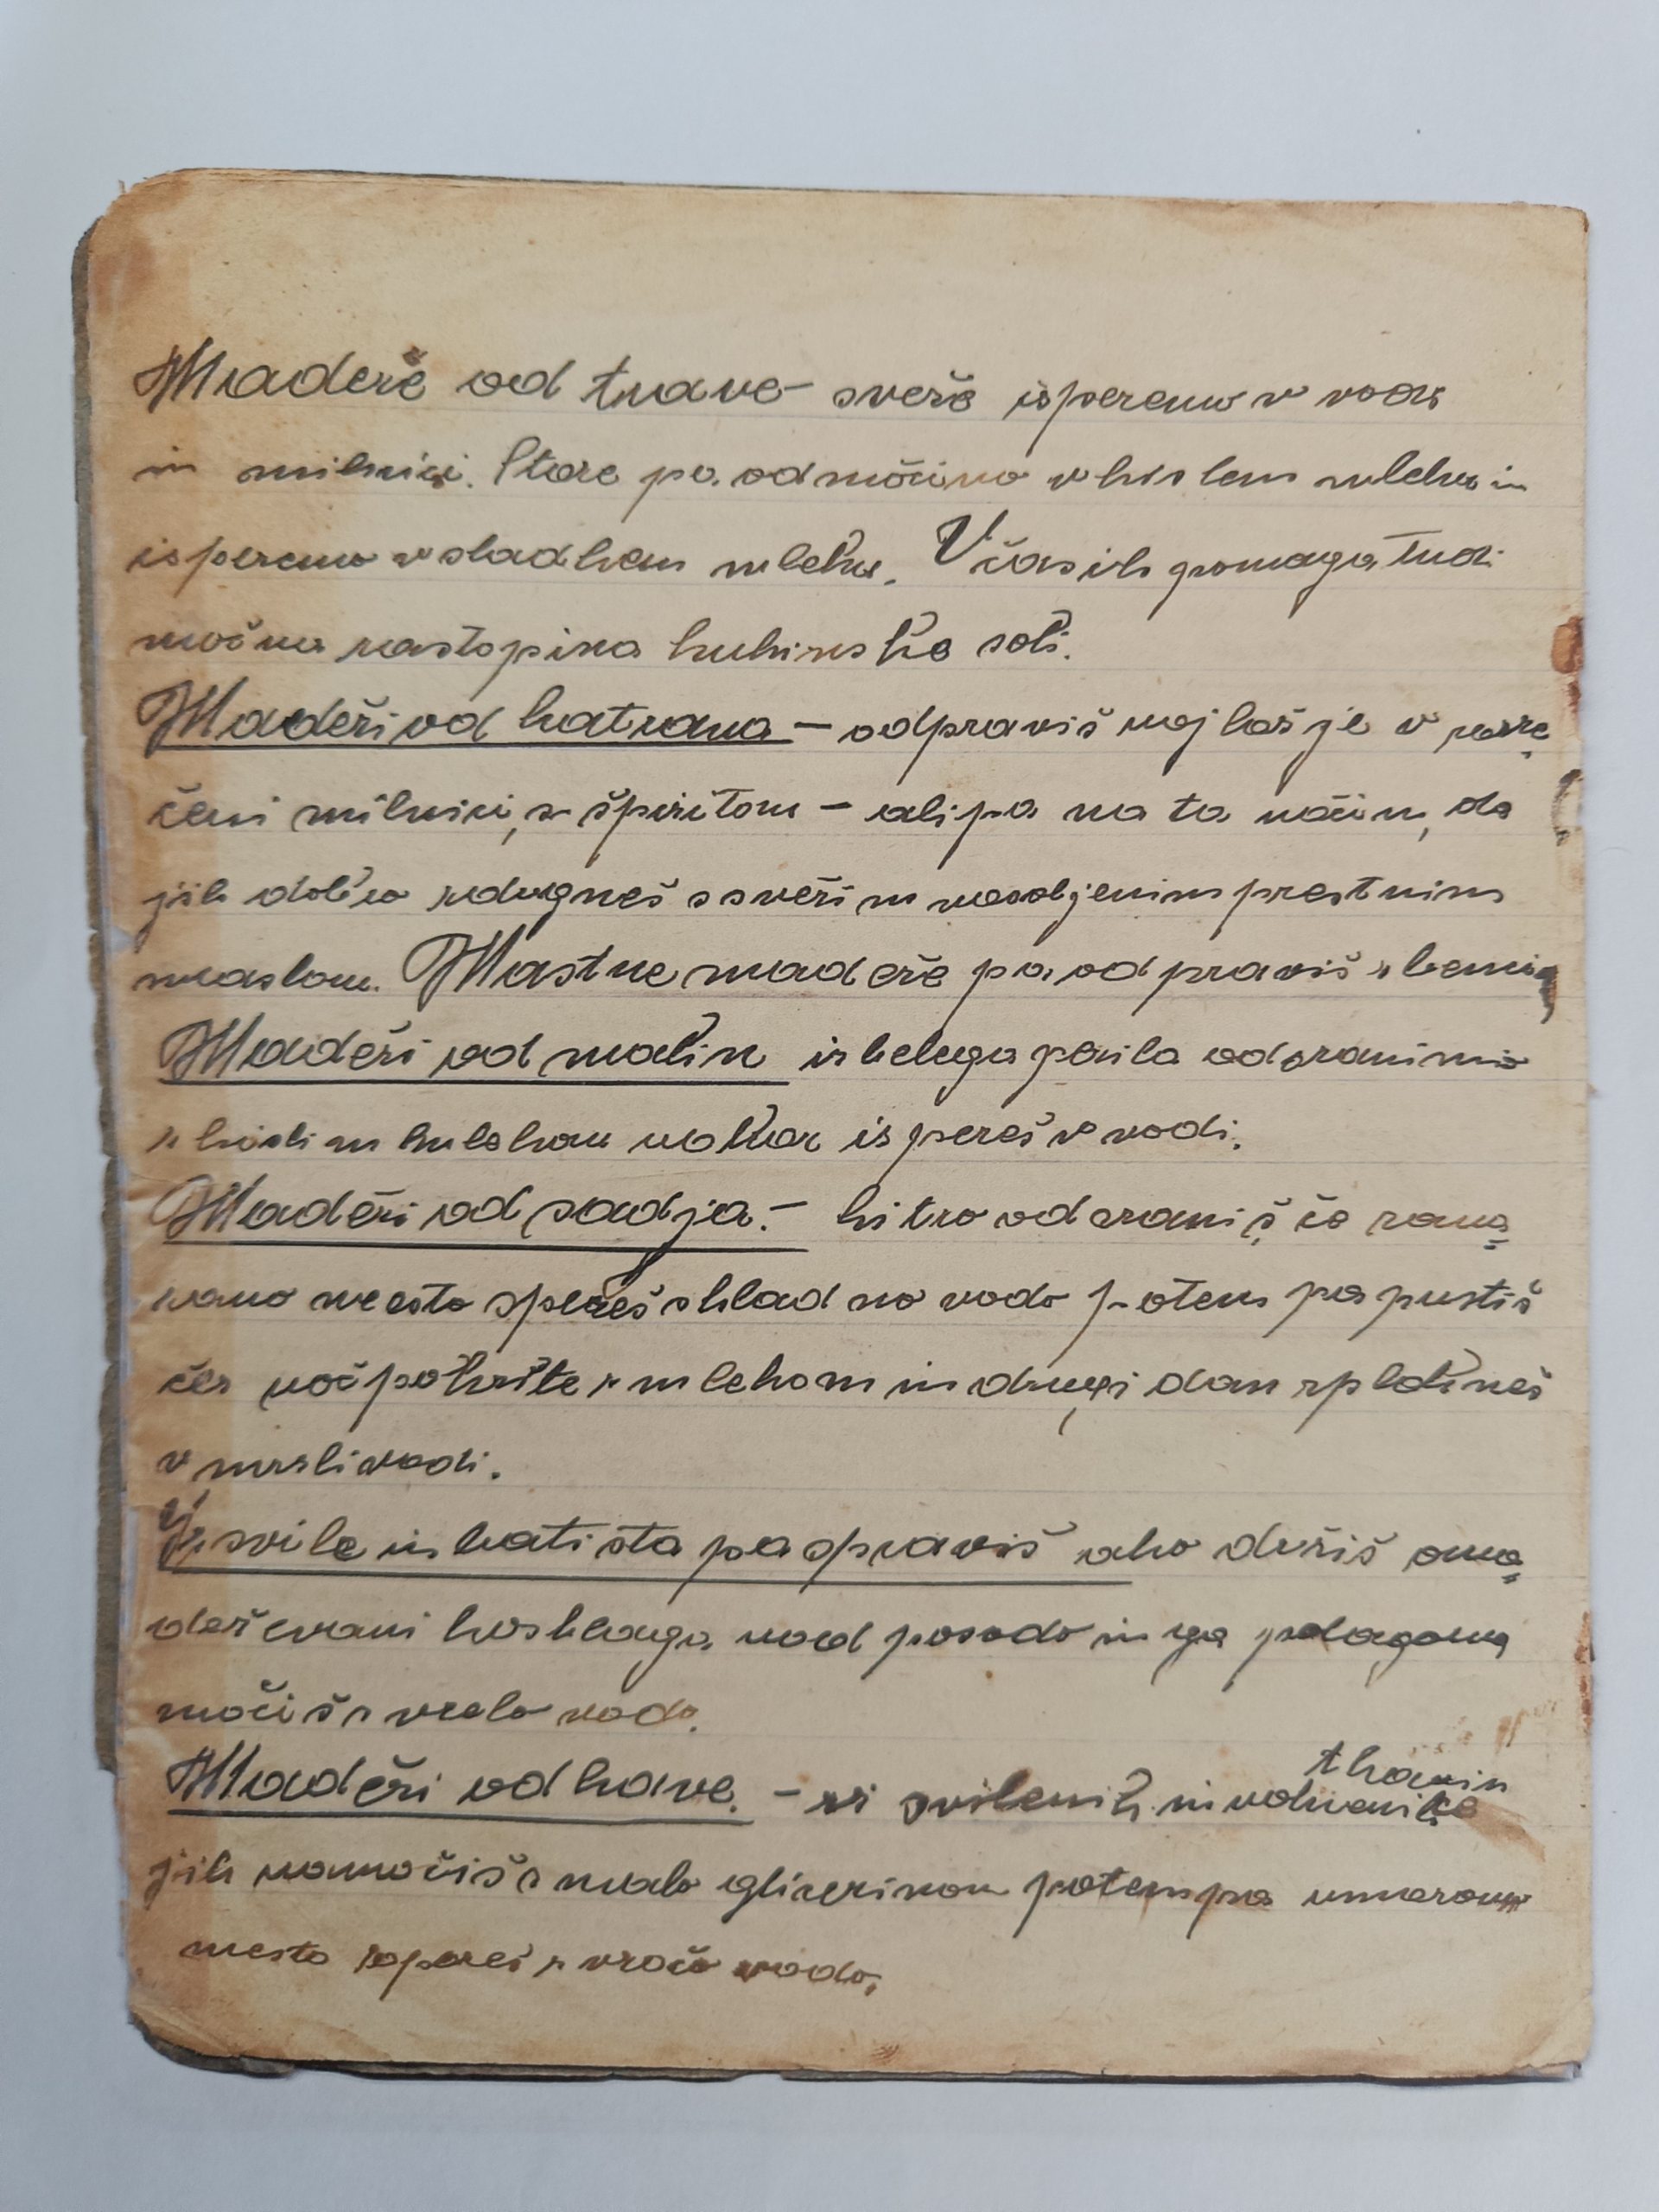 Madeže od trave - sveže isperemo v vodi
in milnici. Stare pa odmočimo v kislem mleku in
isperemo v sladkem mleku. Včasih pomaga tudi
močna rastopina kuhinske soli.
Madeži od katrana - odpraviš najlažje v raze
čeni milnici, s špiritom - ali pa na ta način, da
jih dobro zdrgneš s svežim nasoljenim prestnim
maslom. Mastne madeže pa odpraviš z
Madeži od malin iz belega perila odstranimo
s kislim mlekom nakar ispereš v vodi.
Madeži od sadja. - hitro odstraniš če zama
zano mesto spereš s hladno vodo potem pa pustiš
čez noč pokrite z mlekom in drugi dan splakneš
v mrsli vodi.
Iz svile in batista pa spraviš ako držiš oma
deževani kos blaga nad posodo in ga polagoma
močiš s vrelo vodo.
Madeži od kave. - iz svilenih in volnenih tkanin
jih namočiš s malo glicerinom potem pa umazano
mesto spereš z vročo vodo.